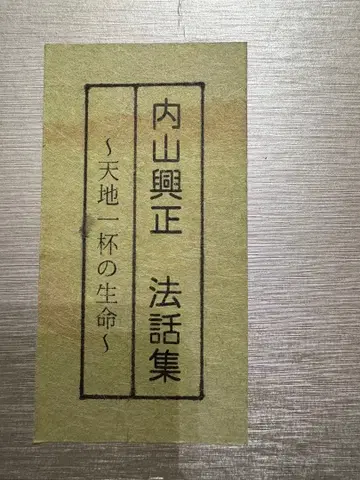 内山興正　法話集
～天地一杯の生命～